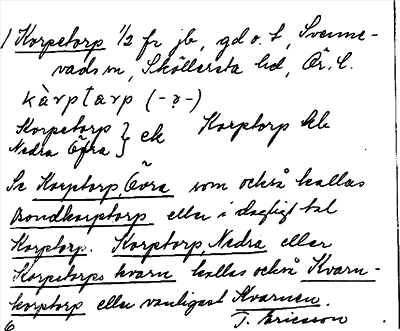 1 Korpetorp 1/2 fr jb, gd o. t, Svenne-
vads sn, Sköllersta hd, Ör. l.
kàrptarp (-ạ-)
Korpetorp } ek Korptorp
Nedra Öfra
Se Korptorp Övra som också kallas
korptorp eller i dagligt tal
Korptorp. Korptorp Nedra eller
Korpetorps kvarn kallas också Kvarn-
korptorp eller vanligast Kvarnen.
6 T. Ericsson